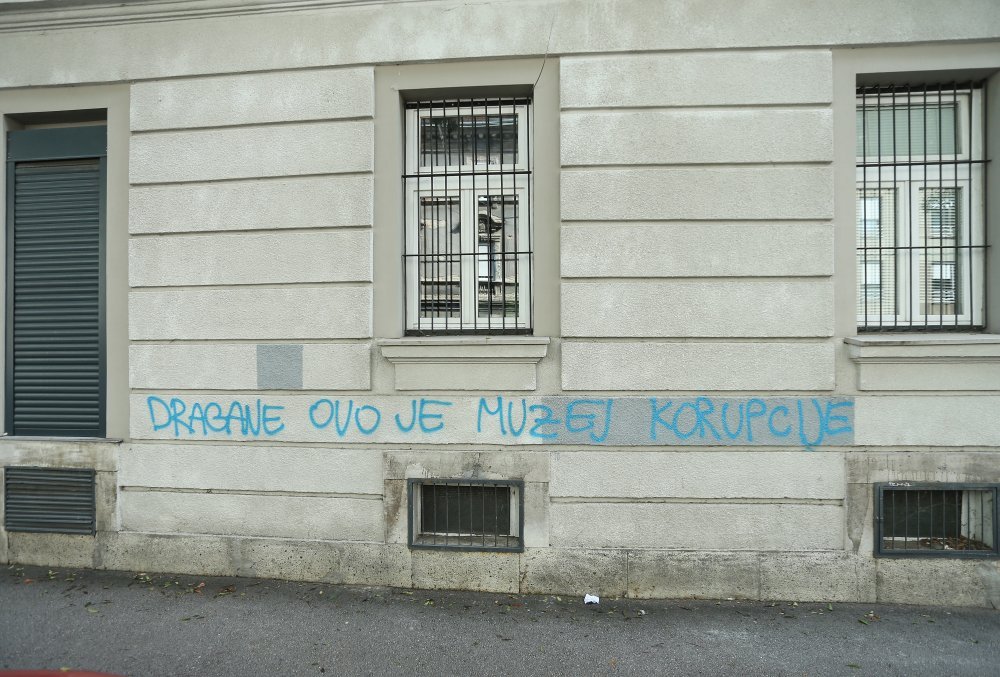 DRAGANE OVO JE MUZEJ KORUPCIJE